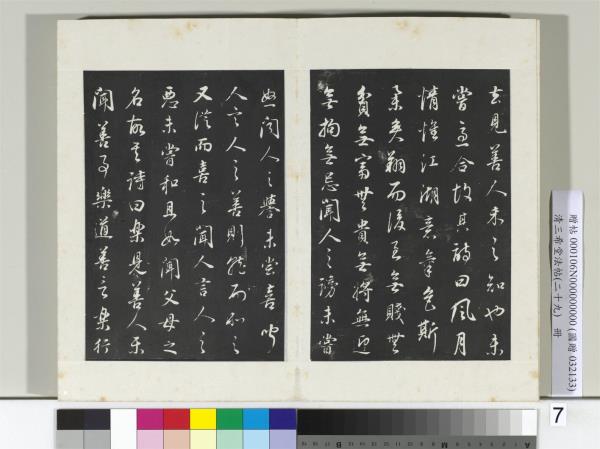 去見善人未之知也未
嘗急合故其詩曰風月
情懷江湖意氣色斯
舉矣翔而後至無賤無
貧無富無貴無將無迎
無拘無忌聞人之謗未嘗
怒聞人之譽未嘗喜聞
人言人之善則就而和之
又從而喜之聞人言人之
惡未嘗和且如聞父母之
名故其詩曰樂見善人樂
聞善事樂道善言樂行
贈帖 000106N000000000 (國贈 032133)
清三希堂法帖(二十九) 冊
7